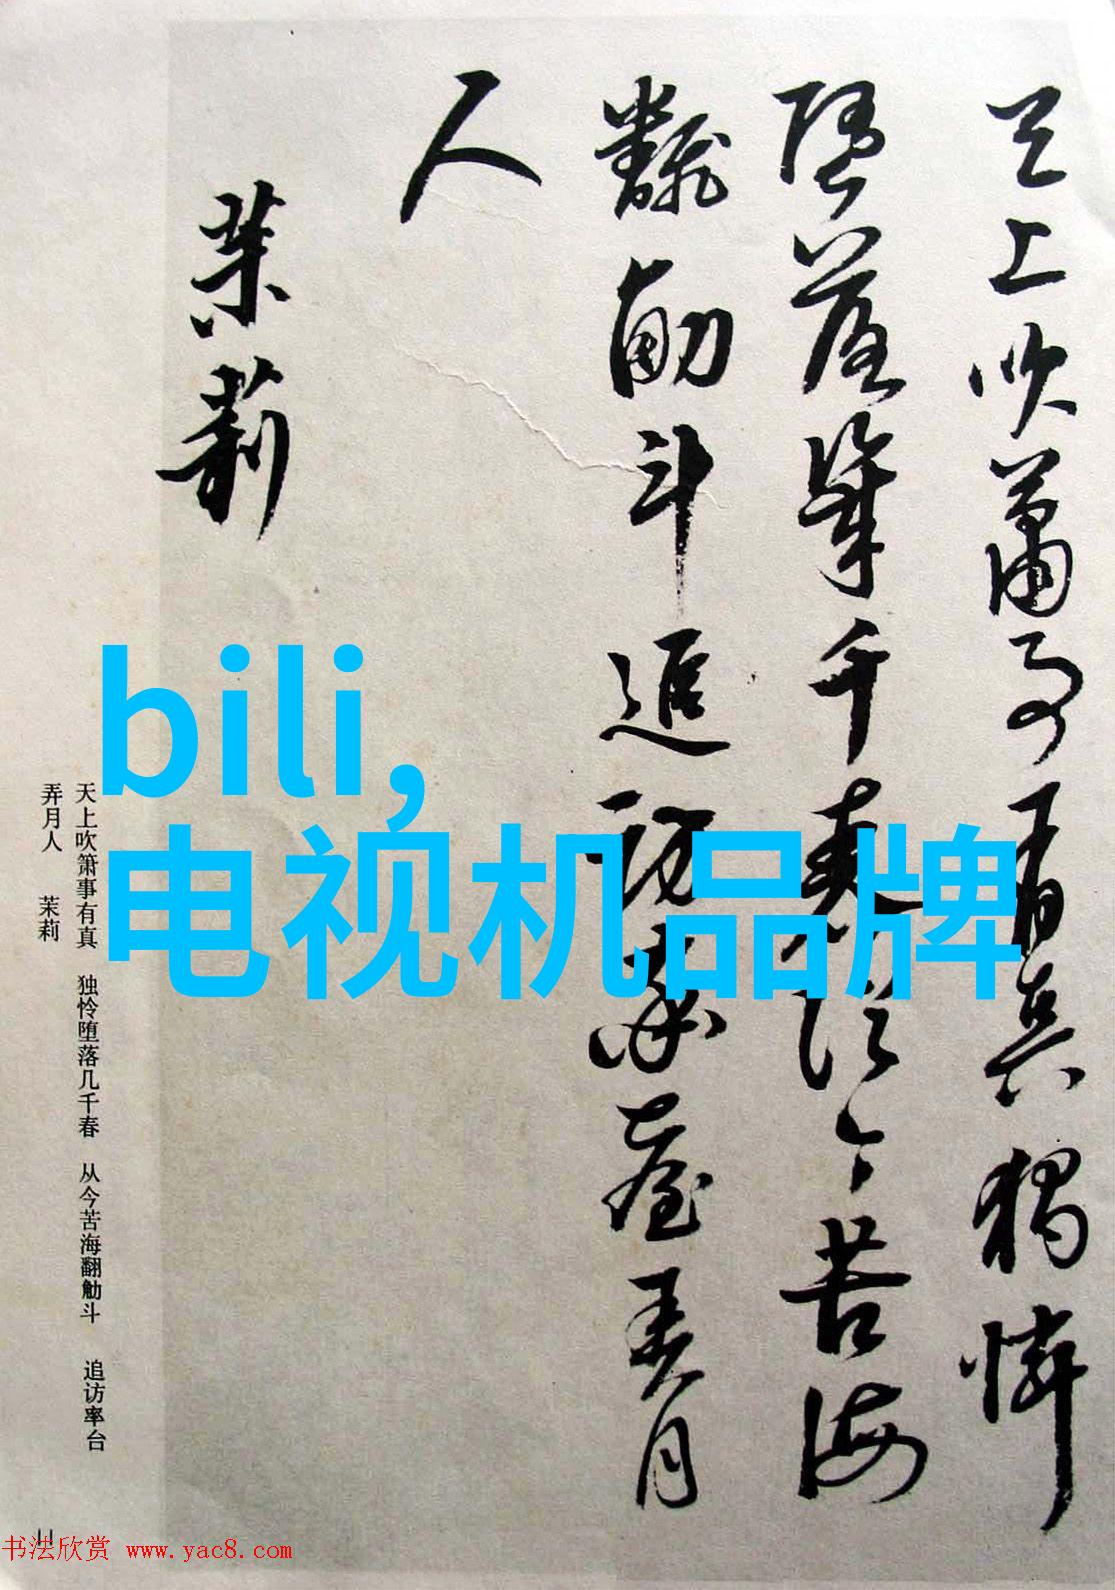 天上吹蕭事有真獨憐
堕落幾千春從今苦海
翻觔斗追訪率臺弄月
人
茉莉
bili,
电视机品牌
天上吹箫事有真 独怜堕落几千春 从今苦海翻觔斗 追访率台
弄月人 茉莉
11
书法欣赏 www.yac8.com